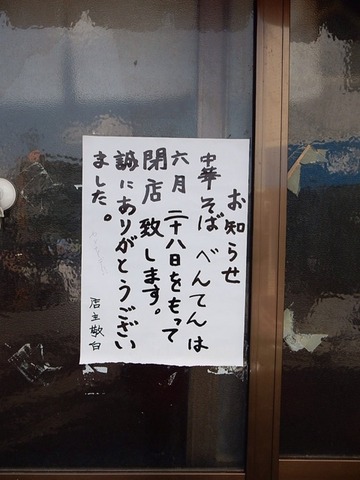 お知らせ
中華そば べんてんは
六月 二十八日をもって
閉店致します。
誠にありがとうござい
ました。
店主敬白